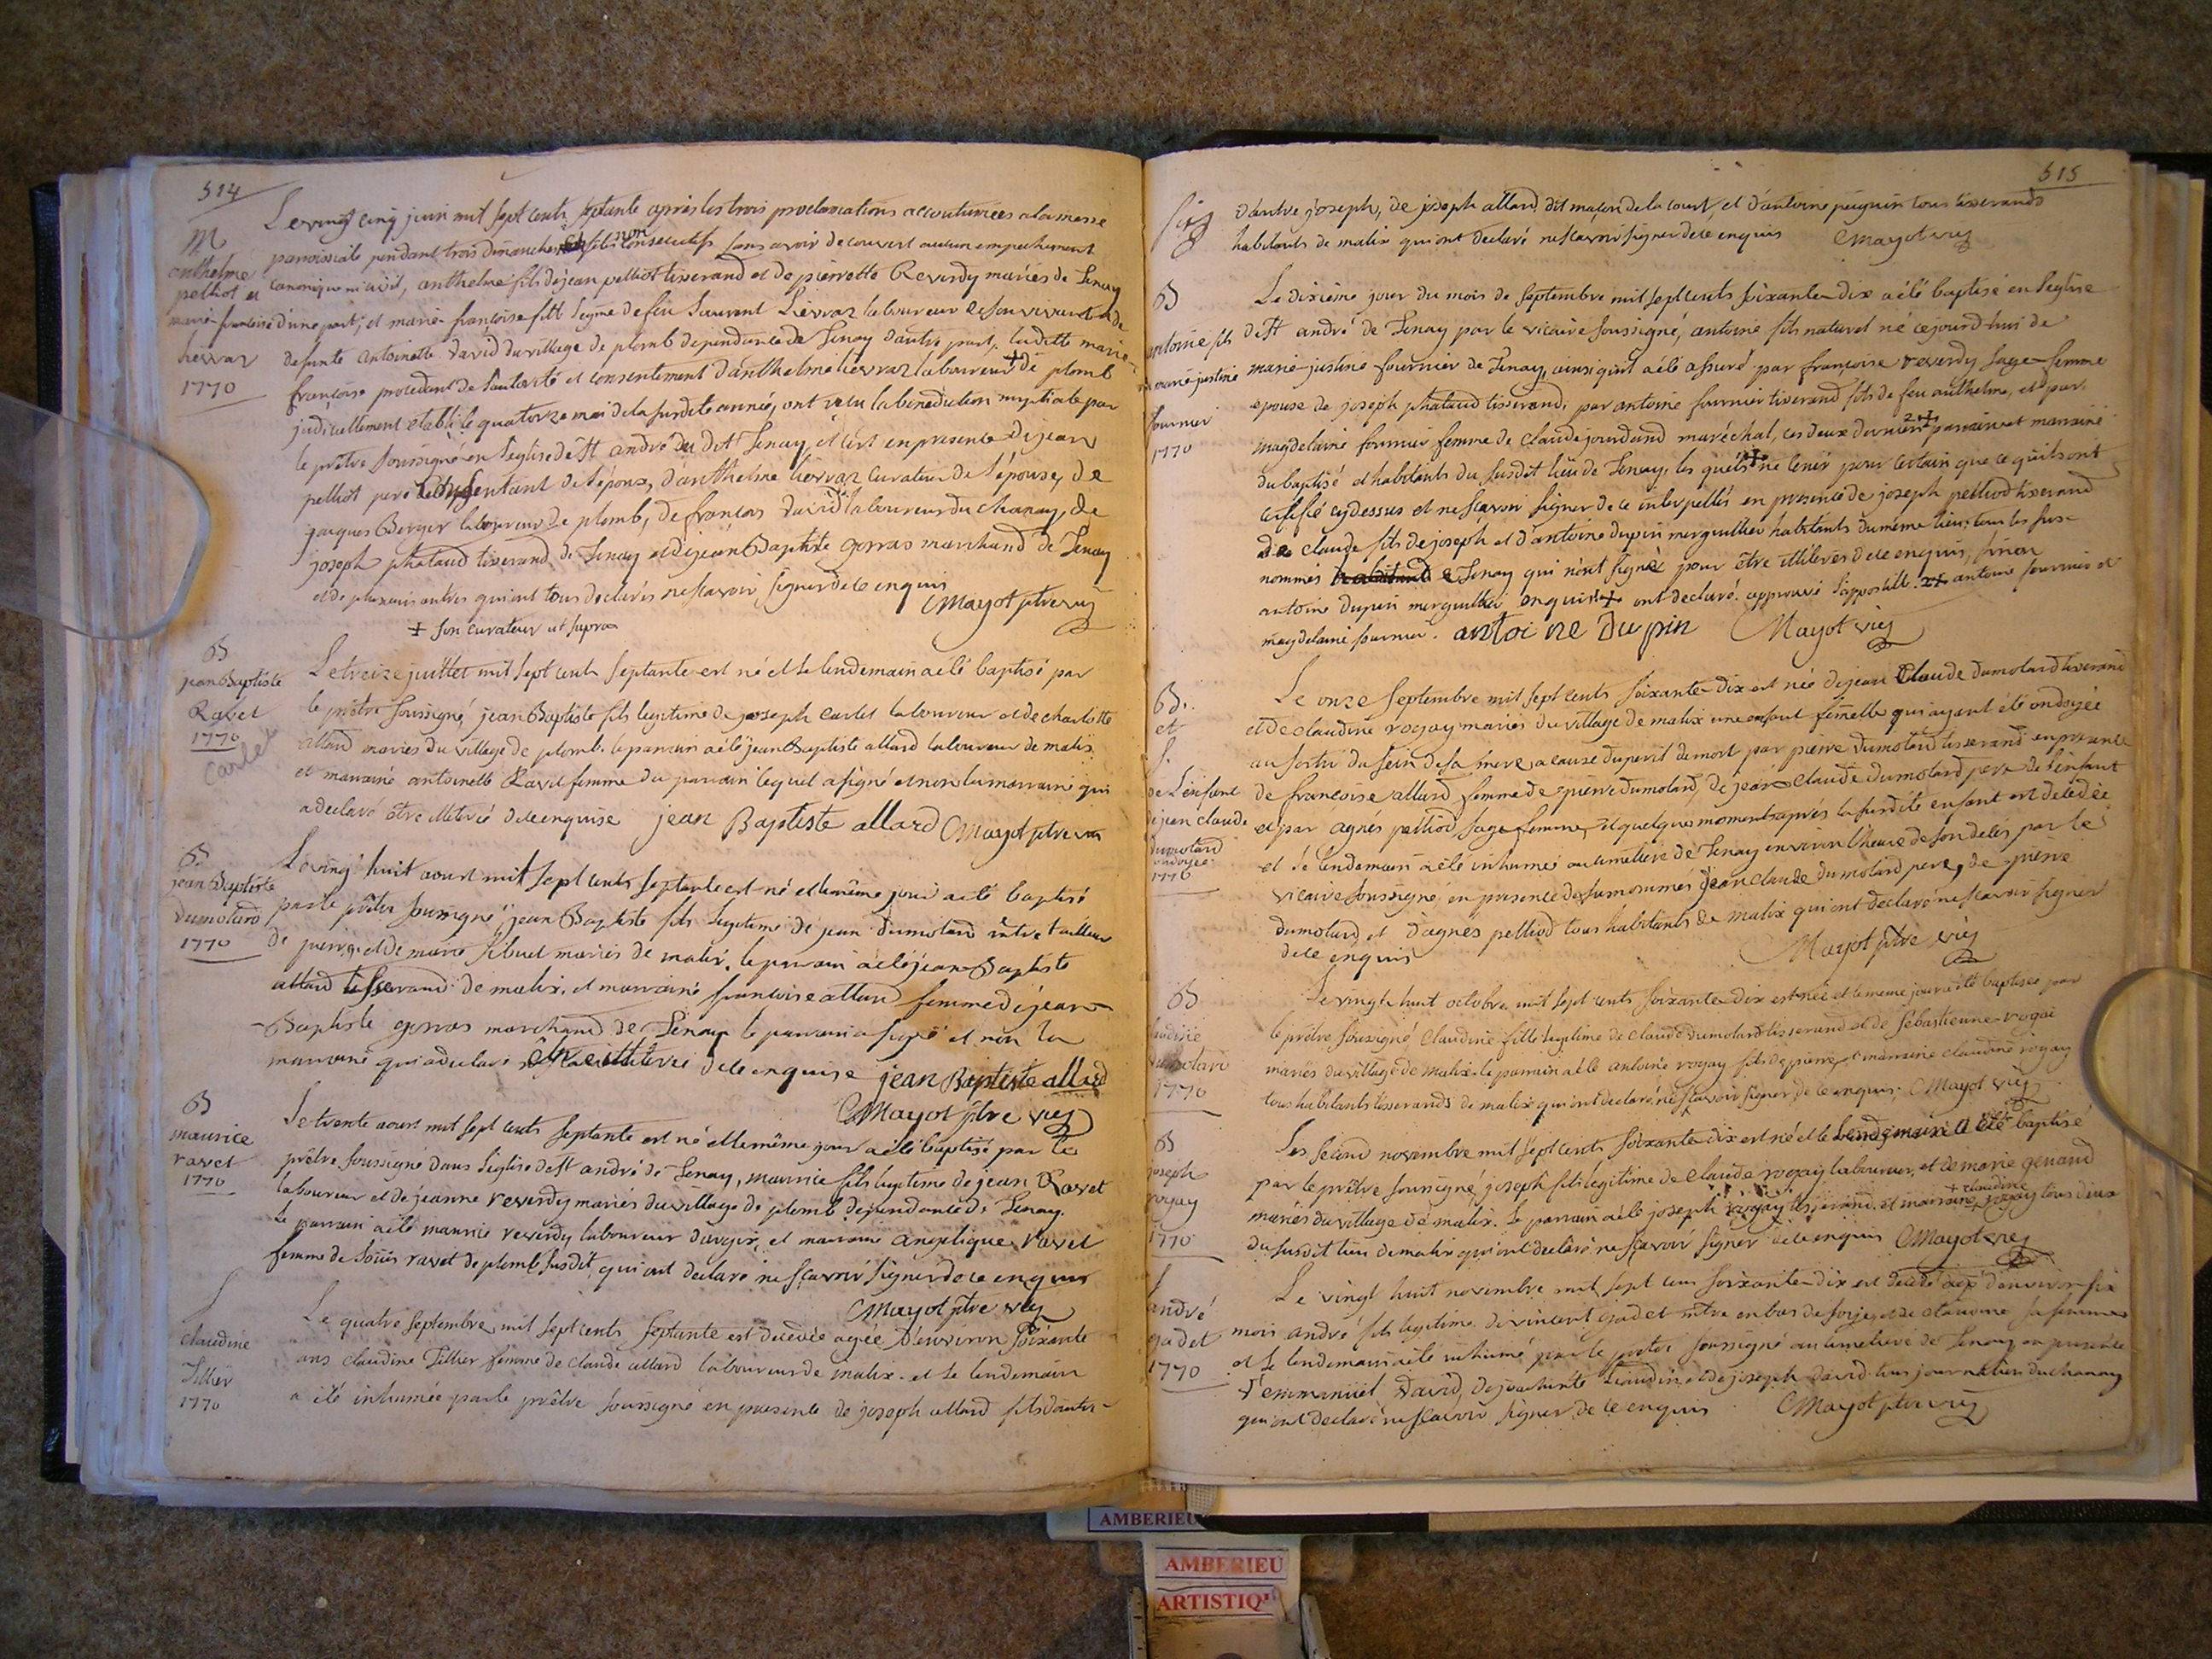 514
M
anthelme
pelliot et
marie françoise
liévraz
1770
Le vingt cinq juin mil sept cents septante après les trois proclamations accoutumées a la messe
paroissiale pendant trois dimanches non consecutifs sans avoir decouvert aucun empechement
canonique ni civil, anthelme fils de jean pelliot tisserand et de pierrette Reverdy mariés de Tenay
d'une part; et marie françoise fille legme de feu Laurent Liévraz laboureur de son vivant et de
defunte antoinette David du village de plomb dependance de Tenay d'autre part, ladite marie
françoise procedant de l'autorité et consentement d'anthelme liévraz laboureur + de plomb
judiciellement etabli le quatorze mai de la susdite année, ont reçu la benediction nuptiale par
le prêtre soussigné en l'eglise de st andré du dit Tenay et c'est en presence de jean
pelliot pere consentant de l'époux, d'anthelme liévraz curateur de l'épouse, de
jacques Berger laboureur de plomb, de françois David laboureur du chanay, de
joseph phataud tisserand de Tenay et de jean Baptiste gorras marchand de Tenay
et de plusieurs autres qui ont tous declarés ne scavoir signer de ce enquis
Mayot ptre vic
+ son curateur ut supra
B
jean Baptiste
Ravet
1770
Carlet
Le treize juillet mil sept cents septante est né et le lendemain a été baptisé par
le prêtre soussigné jean Baptiste fils legitime de joseph carlet laboureur et de charlotte
allard mariés du village de plomb. le parrain a été jean Baptiste allard laboureur de malix
et marraine antoinette Ravet femme du parrain lequel a signé et non la marraine qui
a declaré être illiterée de ce enquise jean Baptiste allard Mayot ptre vic
B
jean Baptiste
dumolard
1770
Le vingt huit aoust mil sept cents septante est né et le même jour a été baptisé
par le prêtre soussigné jean Baptiste fils legitime de jean dumolard mtre tailleur
de pierre et de marie sibuet mariés de malix. le parrain a été jean Baptiste
allard tisserand de malix. et marraine françoise allard femme de jean
Baptiste gorras marchand de Tenay le parrain a signé et non la
marraine qui a declaré être illiterée de ce enquise jean Baptiste allard
Mayot ptre vic
B
maurice
ravet
1770
Le trente aoust mil sept cents septante est né et le même jour a été baptisé par le
prêtre soussigné dans l'eglise de st andré de Tenay, maurice fils legitime de jean Ravet
laboureur et de jeanne reverdy mariés du village de plomb dependance de Tenay.
le parrain a été maurice reverdy laboureur d'argis, et marraine angelique ravet
femme de louis ravet de plomb susdit, qui ont declaré ne scavoir signer de ce enquis
Mayot ptre vic
S
claudine
Tillier
1770
Le quatre septembre mil sept cents septante est decedée agée d'environ soixante
ans claudine Tillier femme de claude allard laboureur de malix. et le lendemain
a été inhumée par le prêtre soussigné en presence de joseph allard fils d'autre
515
d'autre joseph, de joseph allard dit malin de la court, et d'antoine peguin tous tisserands
habitants de malix qui ont declaré ne scavoir signer de ce enquis Mayot vic
B
antoine fils
de marie justine
fournier
1770
Le dixième jour du mois de septembre mil sept cents soixante-dix a été baptisé en l'eglise
de st andré de Tenay par le vicaire soussigné, antoine fils naturel né ce jourd'hui de
marie-justine fournier de Tenay, ainsi qu'il a été assuré par françoise reverdy sage-femme
epouse de joseph phataud tisserand, par antoine fournier tisserand fils de feu anthelme, et par
magdelaine fournier femme de claude jourdand maréchal, ces deux derniers 2+ parrain et marraine
du baptisé et habitants du susdit lieu de Tenay, les quels + ne tenir pour certain que ce qu'ils ont
certifié cy dessus et ne scavoir signer de ce interpellés en presence de joseph pelliod tisserand
de claude fils de joseph et d'antoine dupin marguillier habitants du même lieu; tous les sus-
nommés de Tenay qui n'ont signé pour être illiterés de ce enquis, sinon
antoine dupin marguillier enquis + ont declaré. approuvé l'apostille. 2+ antoine fournier et
magdelaine fournier. antoine Dupin Mayot vic
B.
et
S.
de l'enfant
de jean claude
dumolard
ondoyée
1770
Le onze septembre mil sept cents soixante-dix est née de jean Claude dumolard tisserand
et de claudine rogay mariés du village de malix une enfant femelle qui ayant été ondoyée
au sortir du sein de sa mere, a cause du peril de mort par pierre dumolard tisserand en presence
de françoise allard femme de pierre dumolard, de jean claude dumolard pere de l'enfant
et par agnés pelliod sage femme, et quelques moments après la susdite enfant est decedée
et le lendemain a été inhumée au cimetiere de Tenay environ l'heure de son decés par le
vicaire soussigné en presence des susnommés jean claude dumolard pere, de pierre
dumolard et d'agnés pelliod tous habitants de malix qui ont declaré ne scavoir signer
de ce enquis
Mayot ptre vic
B
claudine
dumolard
1770
Le vingt huit octobre mil sept cents soixante-dix est née et le meme jour a été baptisée par
le prêtre soussigné, claudine fille legitime de claude dumolard tisserand et de sebastienne rogai
mariés du village de malix. le parrain a été antoine rogay fils de pierre, et marraine claudine rogay
tous habitants tisserands de malix qui ont declaré ne scavoir signer de ce enquis. Mayot vic
B
joseph
rogay
1770
Le second novembre mil sept cents soixante-dix est né et le lendemain a été baptisé
par le prêtre soussigné, joseph fils legitime de claude rogay laboureur, et de marie genaud
mariés du village de malix. le parrain a été joseph rogay tisserand. et marraine + claudine rogay tous deux
du susdit lieu de malix qui ont declaré ne scavoir signer de ce enquis Mayot vic
S
andré
gadet
1770
Le vingt huit novembre mil sept cens soixante-dix est decedé agé d'environ six
mois andré fils legitime de vincent gadet mtre en bas de soye, et de claudine sa femme
et le lendemain a été inhumé par le prêtre soussigné au cimetiere de Tenay en presence
d'emmanuel David, de et de joseph david tous journaliers du chanay
qui ont declaré ne scavoir signer de ce enquis Mayot ptre vic
AMBERIEU
AMBERIEU
ARTISTIQ